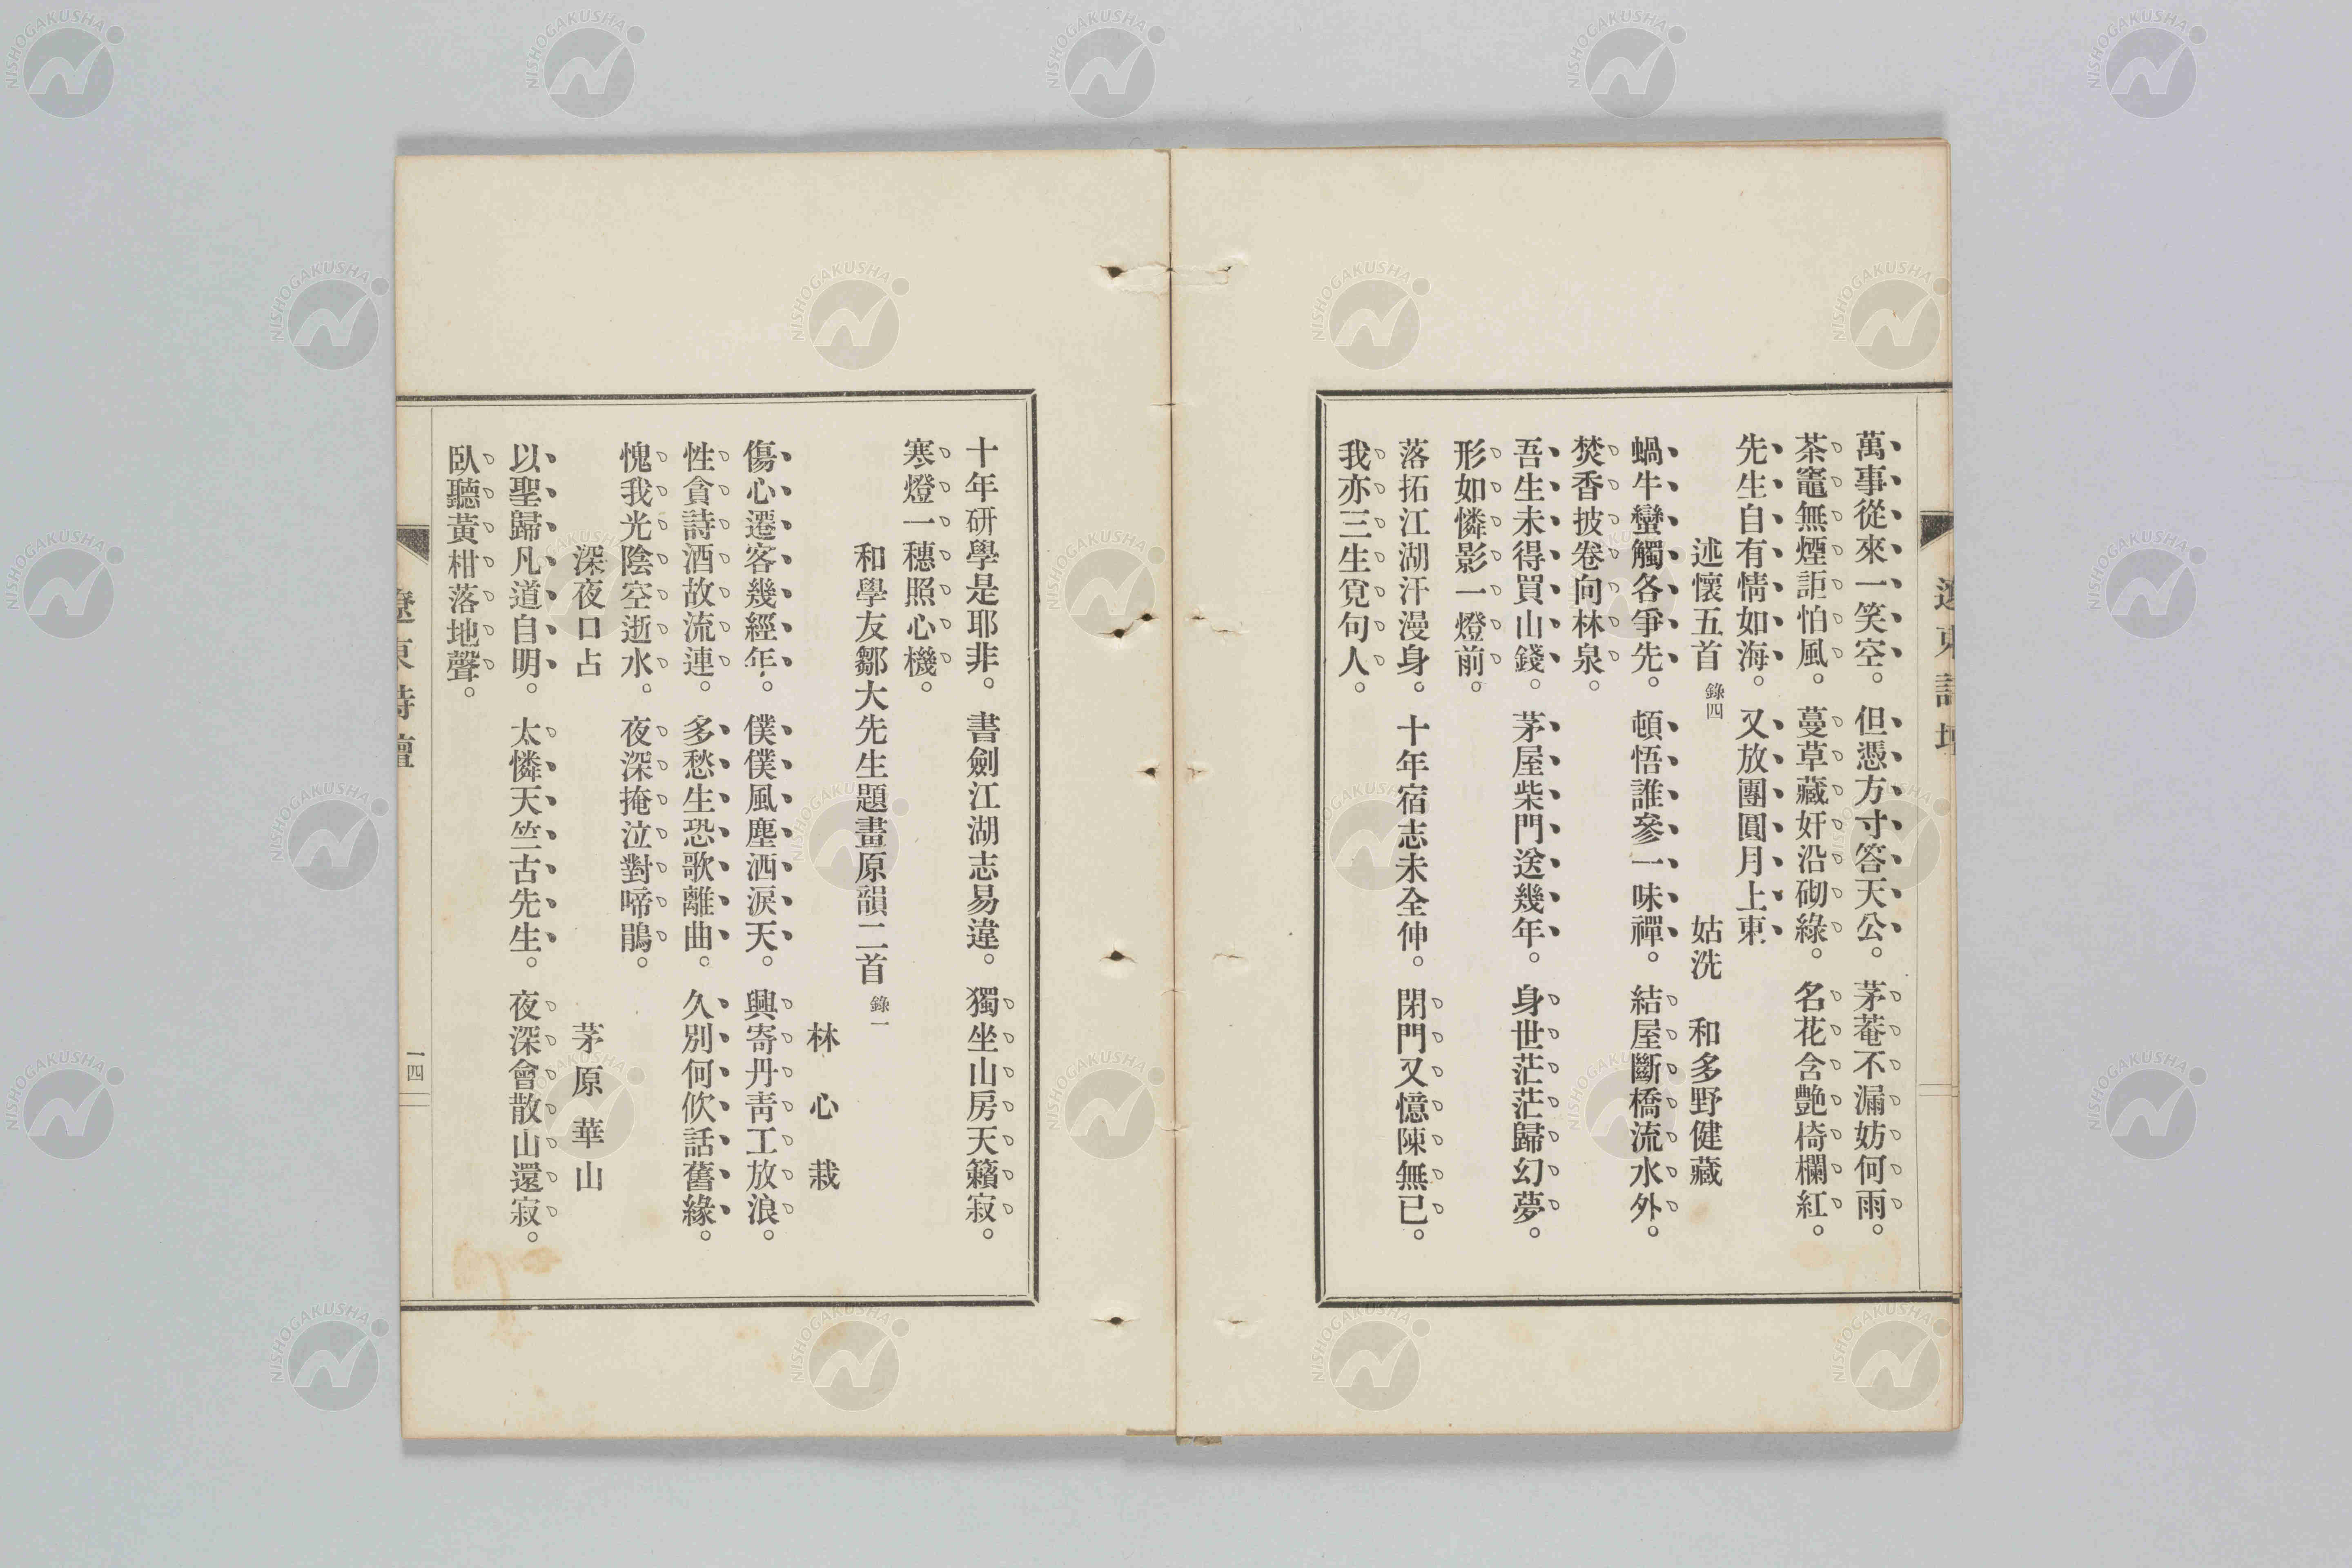 萬事從來一笑空。但憑方寸答天公。茅菴不漏妨何雨。
茶竈無煙詎怕風。蔓草藏奸沿砌綠。名花含艷椅欄紅。
先生自有情如海。又放團圓月上東
述懷五首 錄四 姑洗 和多野健藏
蝸牛蠻觸各爭先。頓悟誰參一味禪。結屋斷橋流水外。
焚香披卷向林泉。
吾生未得買山錢。茅屋柴門送幾年。身世茫茫歸幻夢。
形如憐影一燈前。
落拓江湖汗漫身。十年宿志未全伸。閉門又憶陳無已。
我亦三生覓句人。
遼東詩壇
十年研學是耶非。書劍江湖志易違。獨坐山房天籟寂。
寒燈一穗照心機。
和學友鄒大先生題畫原韻二首 錄一
林心栽
傷心遷客幾經年。僕僕風塵洒淚天。興寄丹靑工放浪。
性貪詩酒故流連。多愁生恐歌離曲。久別何攸話舊緣。
愧我光陰空逝水。夜深掩泣對啼鵑。
深夜口占 茅原華山
以聖歸凡道自明。太憐天竺古先生。夜深會散山還寂。
臥聽黃柑落地聲。
遼東詩壇
一四
NISHOGAKUSHA